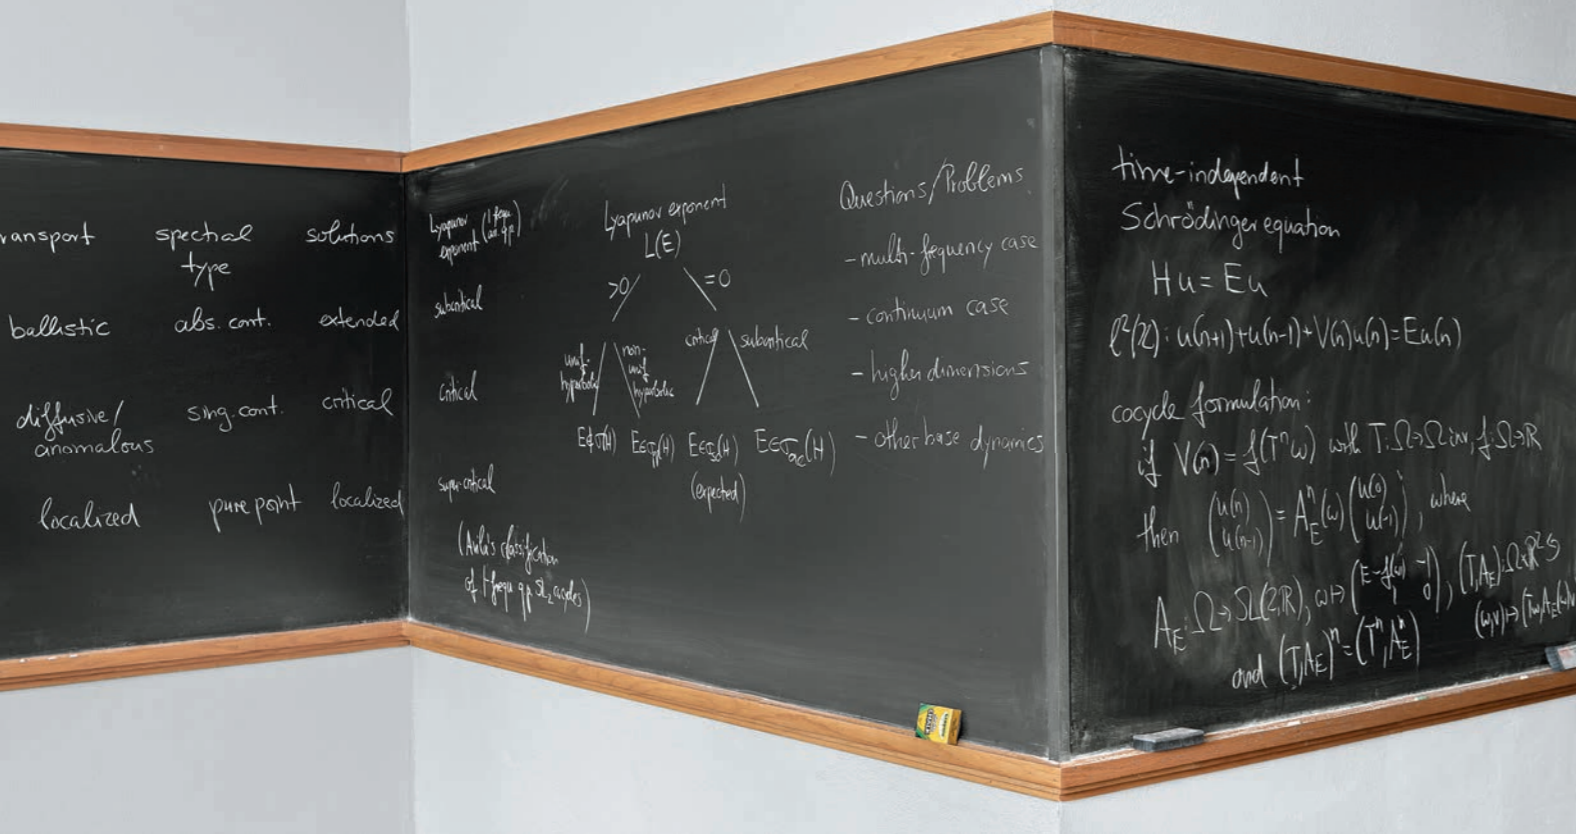 ransport spectral type solutions
ballistic abs. cont. extended
diffusive/ anomalous sing. cont. critical
localized pure point localized
Lyapunov exponent (1 frequ. an. q.p.)
subcritical
critical
supercritical
(Avila's classification
of 1-frequ. q.p. SL₂ cocycles)
Lyapunov exponent
L(E)
>0 =0
unif. hyperbolic non-unif. hyperbolic critical subcritical
E∉σ(H) E∈σpp(H) E∈σsc(H) E∈σac(H)
(expected)
Questions/Problems
- multi-frequency case
- continuum case
- higher dimensions
- other base dynamics
time-independent
Schrödinger equation
Hu = Eu
ℓ²(ℤ): u(n+1)+u(n-1)+V(n)u(n)=Eu(n)
cocycle formulation:
if V(n) = f(Tⁿω) with T:Ω→Ω inv, f:Ω→ℝ
then (u(n) u(n-1)) = A_E^n(ω) (u(0) u(-1)), where
A_E: Ω→SL(2,ℝ), ω↦(E-f(ω) -1 1 0), (T,A_E):Ω×ℝ²↻
(ω,v)↦(Tω,A_E(ω)v
and (T,A_E)ⁿ=(Tⁿ,A_E^n)